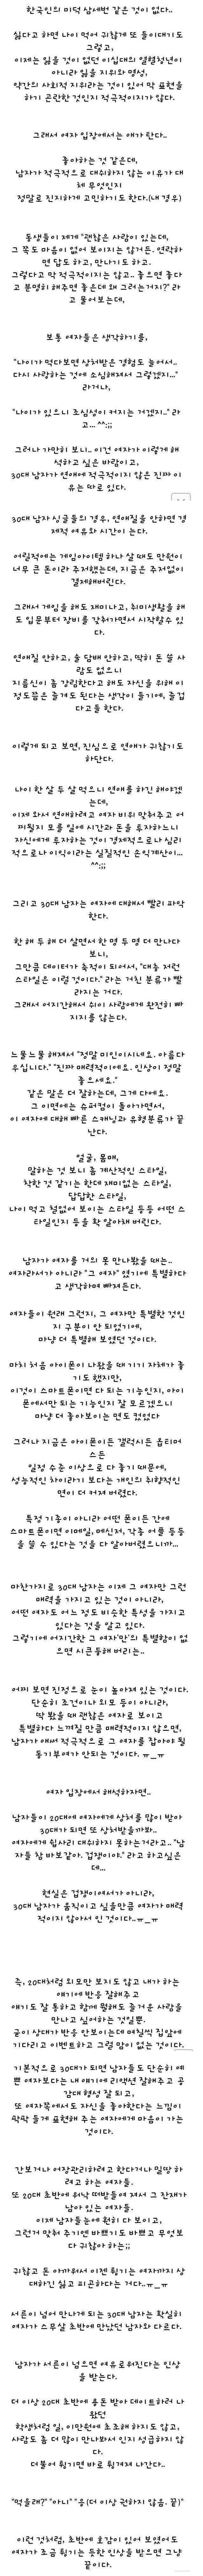 한국인의 미덕 삼세번 같은 것이 없다..
싫다고 하면 나이 먹어 귀찮게 또 들이대기도
그렇고,
이제는 잃을 것이 없던 이십대의 열혈청년이
아니라 잃을 지위와 명성,
약간의 사회적 지위라는 것이 있어 막 표현을
하기 곤란한 것인지 적극적이지가 않다.
그래서 여자 입장에서는 애가 탄다..
좋아하는 것 같은데,
남자가 적극적으로 대쉬하지 않는 이유가 대
체 무엇인지
정말로 진지하게 고민하기도 한다.(내 경우)
동생들이 제게 "괜찮은 사람이 있는데,
그 쪽도 마음이 없어 보이지는 않거든. 연락하
면 답도 하고, 만나기도 하고.
그렇다고 막 적극적이지는 않고.. 좋으면 좋다
고 분명히 해주면 좋은데 왜 그러는거지?" 라
고 물어보는데,
보통 여자들은 생각하기를,
"나이가 먹다보면 상처받은 경험도 늘어서..
다시 사랑하는 것에 소심해져서 그렇겠지..."
라거나,
"나이가 있으니 조심성이 커지는 거겠지.." 라
고... ^^;;
그러나 가만히 보니.. 이건 여자가 이렇게 해
석하고 싶은 바람이고,
30대 남자가 연애에 적극적이지 않은 진짜 이
유는 따로 있다.
30대 남자 싱글들의 경우, 연애질을 안하면 경
제적 여유와 시간이 는다.
어릴적에는 게임아이템 하나 살 때도 만원이
너무 큰 돈이라 주저했는데, 지금은 주저없이
결제해버린다.
그래서 게임을 해도 재미나고, 취미생활을 해
도 입문부터 장비를 갖춰가면서 시작할수 있
다.
연애질 안하고, 술 담배 안하고, 딱히 돈 쓸 사
람도 없으니
지름신이 좀 강림한다고 해도 자신을 위해 이
정도쯤은 즐겨도 된다는 생각이 들기에, 즐겁
다고들 한다.
이렇게 되고 보면, 진심으로 연애가 귀찮기도
하단다.
나이 한 살 두 살 먹으니 연애를 하긴 해야겠
는데,
이제 와서 연애하려고 여자 비위 맞춰주고 어
찌될지 모를 일에 시간과 돈을 투자하느니
자신에게 투자하는 것이 경제적으로나 심리
적으로나 이익이라는 실질적인 손익계산이...
^^;;
그리고 30대 남자는 여자에 대해서 빨리 파악
한다.
한 해 두 해 더 살면서 한 명 두 명 더 만나다
보니,
그만큼 데이터가 축적이 되어서, "대충 저런
스타일은 이럴 것이다." 라는 거친 분류가 빨
라지는 거다.
그래서 어지간해서 쉬이 사람에게 완전히 빠
지지를 않는다.
느물느물 해져서 "정말 미인이시네요. 아름다
우십니다." "진짜 매력적이에요. 인상이 정말
좋으세요."
같은 말은 더 잘하는데, 그게 다에요.
그 이면에는 슈퍼컴이 돌아가면서,
이 여자에 대해 빠른 스캐닝과 유형분류가 끝
난다.
얼굴, 몸매,
말하는 것 보니 좀 계산적인 스타일,
착한 것 같기는 한데 재미없는 스타일,
답답한 스타일,
나이 먹고 철없어 보이는 스타일 등등 어떤 스
타일인지 등을 확 알아채 버린다.
남자가 여자를 거의 못 만나봤을 때는..
여자라서가 아니라 "그 여자" 였기에 특별하다
고 생각하며 빠져든다.
여자들이 원래 그런지, 그 여자만 특별한 것인
지 구분이 안 되었기에,
마냥 더 특별해 보였던 것이다.
마치 처음 아이폰이 나왔을 때 기기 자체가 좋
기도 했지만,
이것이 스마트폰이면 다 되는 기능인지, 아이
폰에서만 되는 기능인지 잘 모르겠으니
마냥 더 좋아보이는 면도 컸었다
그러나 지금은 아이폰이든 갤럭시든 옵티머
스든
일정 수준 이상으로 다 좋기 때문에,
성능적인 차이라기 보다는 개인의 취향적인
면이 더 커져 버렸다.
특정 기종이 아니라 어떤 폰이든 간에
스마트폰이면 이메일, 메신저, 각종 어플 등등
을 쓸 수 있다는 것을 다 알아버렸으니까...
마찬가지로 30대 남자는 이제 그 여자만 그런
매력을 가지고 있는 것이 아니라,
어떤 여자도 어느 정도 비슷한 특성을 가지고
있다는 것을 알고 있다.
그렇기에 어지간한 그 여자'만'의 특별함이 없
으면 시큰둥해 버리는..
어찌 보면 진정으로 눈이 높아져 있는 것이다.
단순히 조건이나 외모 등이 아니라,
딱 봤을 때 괜찮은 여자로 보이고
특별하다 느껴질 만큼 매력적이지 않으면,
남자가 애써 적극적으로 그 여자를 잡아야 될
동기부여가 안되는 것이다. ㅠ_ㅠ
여자 입장에서 해석하자면..
남자들이 20대에 여자에게 상처를 많이 받아
30대가 되면 또 상처받을까봐..
여자에게 쉽사리 대쉬하지 못하는거라고.. "남
자들 참 바보같아. 겁쟁이야." 라고 하고싶은
데...
현실은 겁쟁이여서가 아니라,
30대 남자가 움직이고 싶을만큼 여자가 매력
적이지 않아서 인 것이다..ㅠ_ㅠ
즉, 20대처럼 외모만 보지도 않고 내가 하는
얘기에 반응 잘해주고
얘기도 잘 통하고 함께 뭘해도 즐거운 사람을
만나고 싶어하는 것일뿐.
굳이 상대가 반응 안보이는데 며칠씩 집앞에
기다리고 이벤트하고 그럴 맘이 없는 것이다.
기본적으로 30대가 되면 남자들도 단순히 예
쁜 여자보다는 내 얘기에 리액션 잘해주고 공
감대 형성 잘 되고,
또 여자쪽에서도 자신을 좋아한다는 느낌이
팍팍 들게 표현해 주는 여자에게 마음이 가는
것이다.
간보거나 어장관리하려고 한다거나 밀땅 하
려고 하는 여자들.
또 20대 초반에 워낙 떠받들여 져서 그 잔재가
남아 있는 여자들.
이제 남자들눈에 훤히 다 보이고,
그런거 맞춰 주기엔 바쁘기도 바쁘고 무엇보
다 귀찮아 하는;;
귀찮고 돈 아까워서 이젠 튕기는 여자까지 상
대하긴 싫고 피곤하다는 거다..ㅠ_ㅠ
서른이 넘어 만나게 되는 30대 남자는 확실히
여자가 스무살 초반에 만났던 남자와 다르다.
남자가 서른이 넘으면 여유로워진다는 인상
을 받는다.
더 이상 20대 초반에 용돈 받아 데이트하러 나
왔던
학생처럼 일, 이만원에 초조해 하지도 않고,
사람도 좀 더 많이 만나봐서 인지 성급하지 않
다.
더불어 튕기면 바로 튕겨져 나간다..
"먹을래?" "아니" "응(더 이상 권하지 않음. 끝)"
이런 것처럼, 초반에 호감이 있어 보였어도
여자가 조금 튕기는 듯한 인상을 받으면 그냥
끝이다.